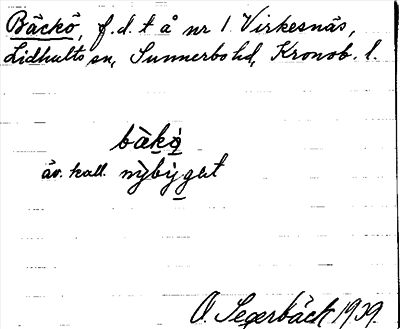 Bäckö, f.d. t å nr 1 Virkesnäs,
Lidhults sn, Sunnerbo hd, Kronob. l.
bàkö̀
äv. kall. nỳbỳgət
O. Segerbäck 1939.